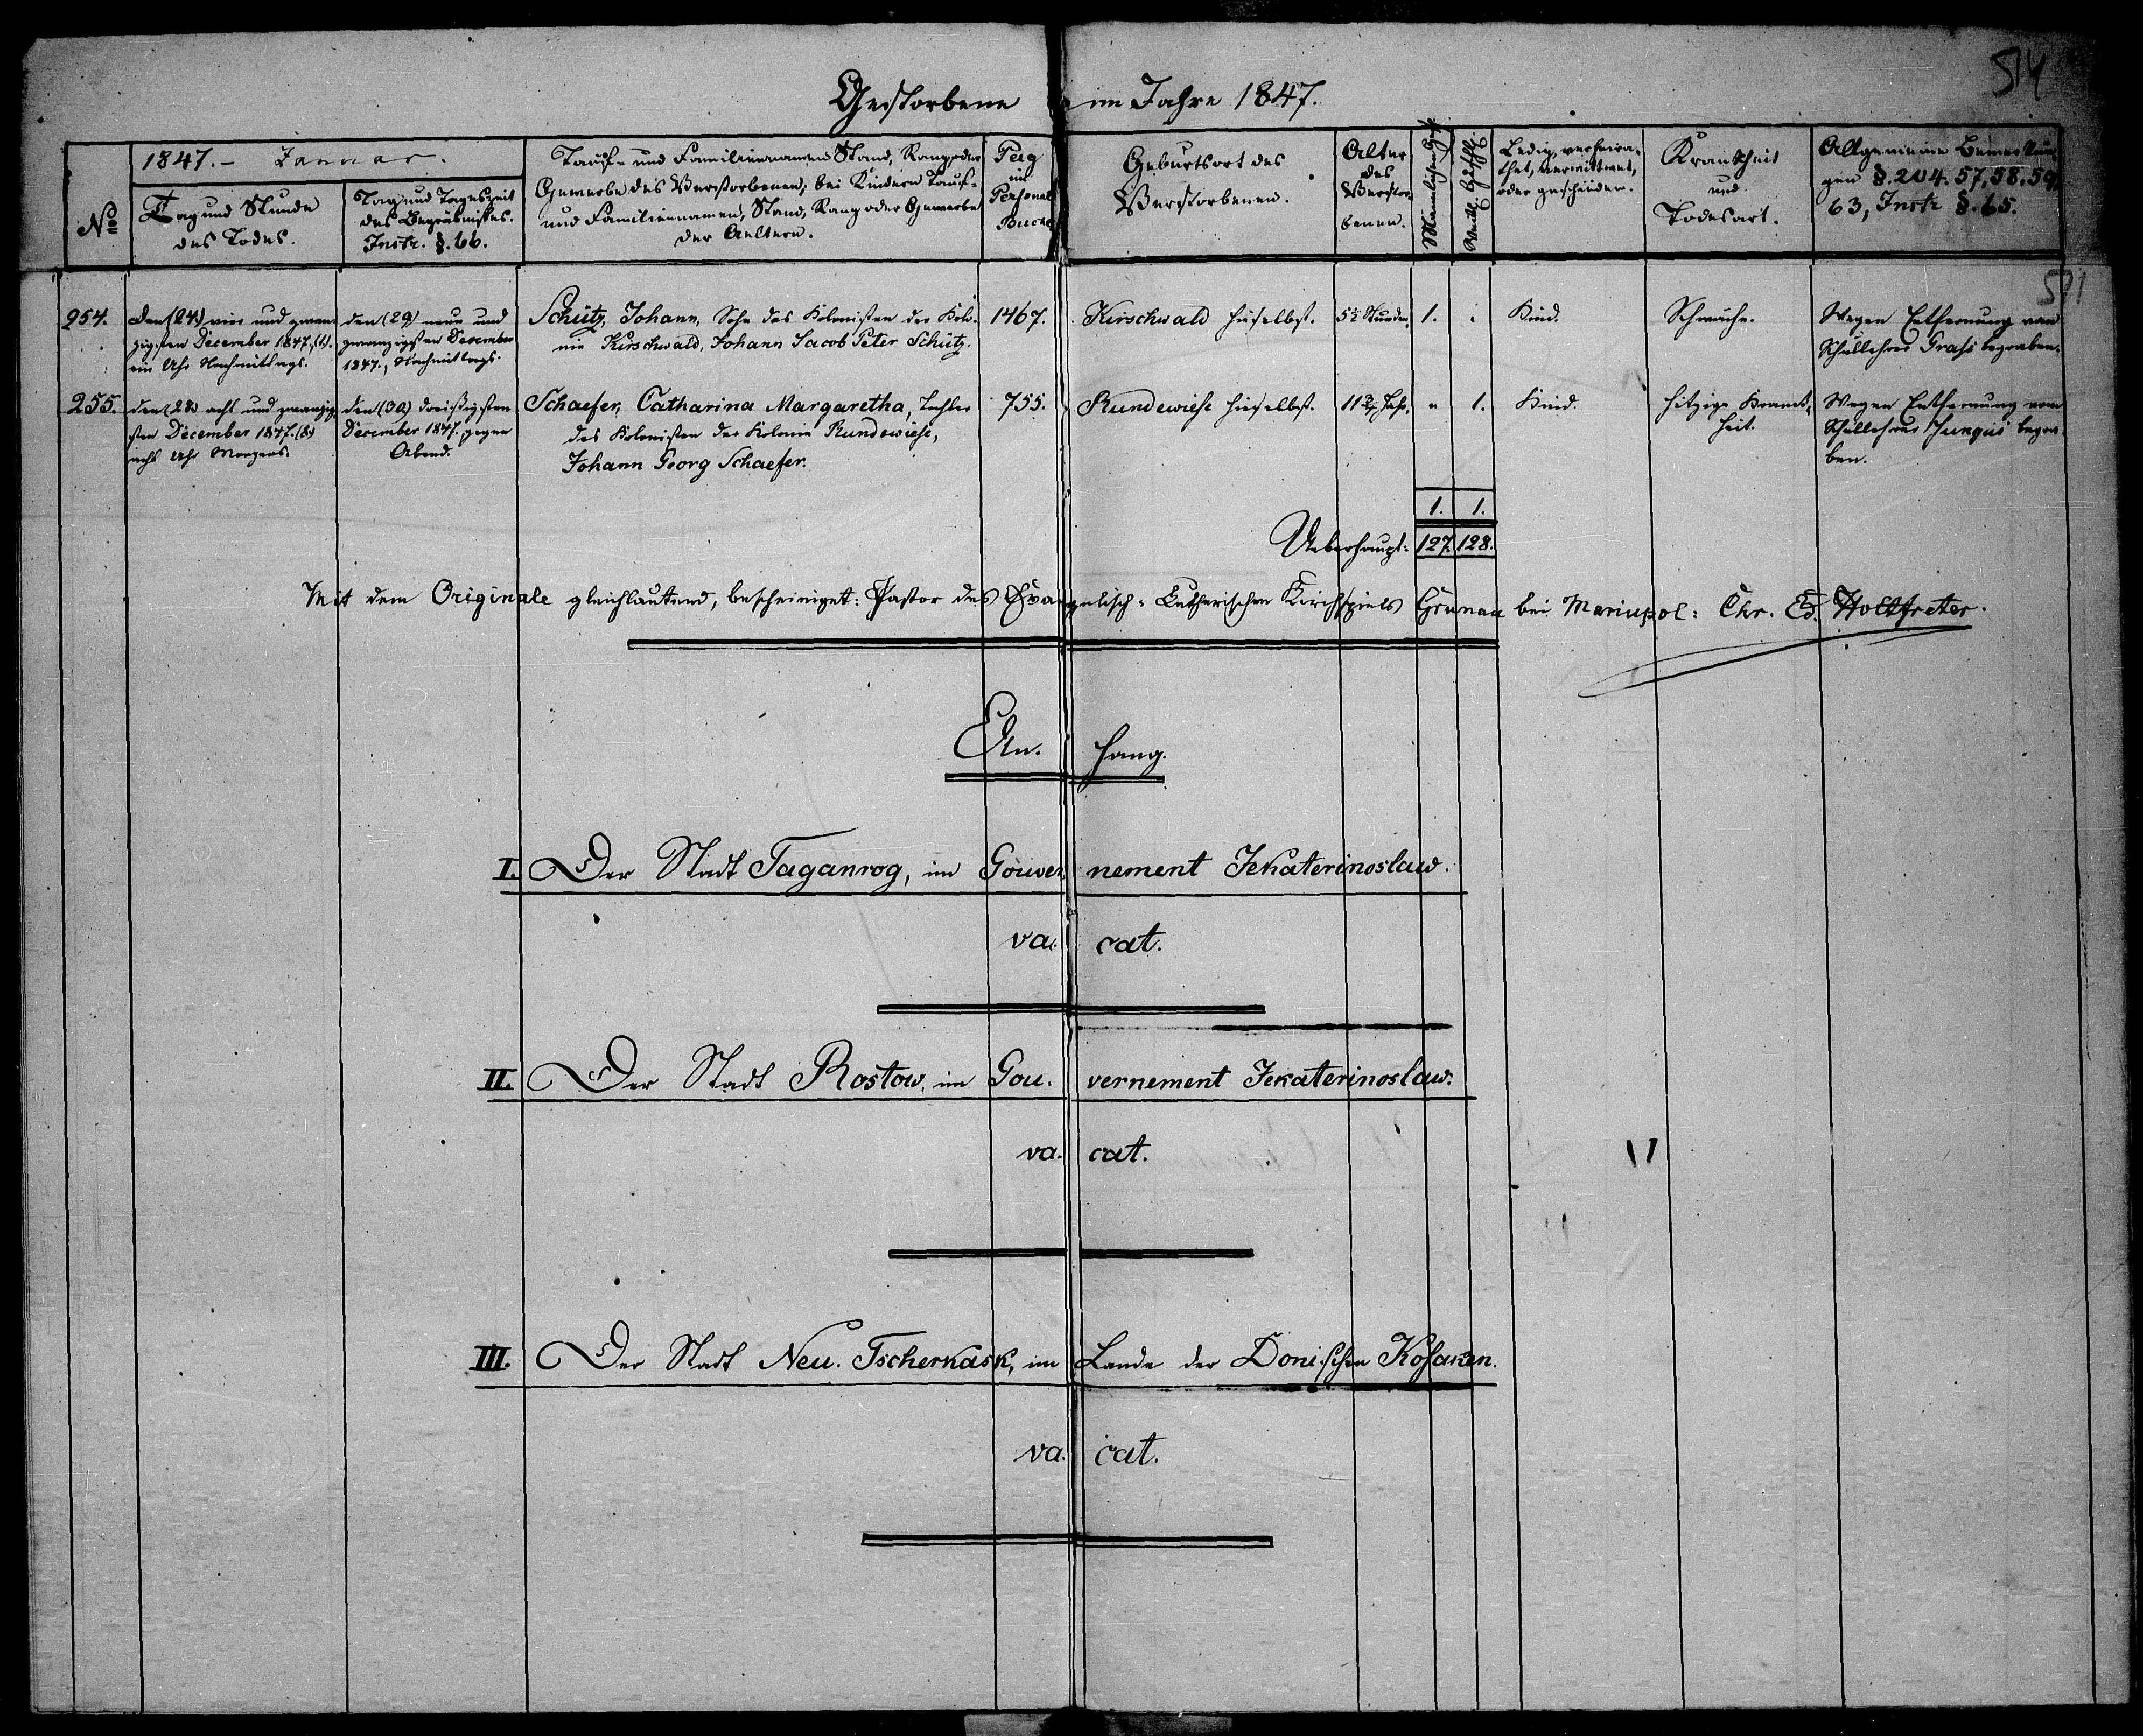 514
Gestorbene im Jahre 1847.
No
1847. - Januar.
Tag und Stunde
des Todes.
Tag und Tageszeit
des Begräbnisses.
Instr. §. 66.
Tauf- und Familiennamen Stand, Rang oder
Gewerbe des Verstorbenen; bei Kindern Tauf-
und Familiennamen, Stand, Rang oder Gewerbe
der Aeltern.
Pag
im
Personal
Buche
Geburtsort des
Verstorbenen.
Alter
des
Verstor-
benen.
Männlichen Geschl.
Weibl. Geschl.
Ledig, verheira-
thet, verwittwet,
oder geschieden.
Krankheit
und
Todesart.
Allgemeine Bemerkun-
gen §. 204. 57, 58. 59,
63, Instr. §. 65.
511
254.
den (24) vier und zwan-
zigsten December 1847, (1).
ein Uhr Nachmittags.
den (29) neun und
zwanzigsten December
1847., Nachmittags.
Schütz, Johann, Sohn des Kolonisten der Kolo-
nie Kirschwald, Johann Jacob Peter Schütz.
1467.
Kirschwald hieselbst.
5½ Stunden.
1.
Kind.
Schwäche.
Wegen Entfernung vom
Schullehrer Grass begraben.
255.
den (28) acht und zwanzig-
sten December 1847. (8)
acht Uhr Morgens.
den (30) dreißigsten
December 1847. gegen
Abend.
Schaefer, Catharina Margaretha, Tochter
des Kolonisten der Kolonie Rundewiese,
Johann Georg Schaefer.
755.
Rundewiese hieselbst.
11¾ Jahr.
"
1.
Kind.
hitzige Krank-
heit.
Wegen Entfernung vom
Schullehrer Jungius begra-
ben.
1. 1.
Ueberhaupt: 127. 128.
Mit dem Originale gleichlautend, bescheiniget: Pastor des Evangelisch-Lutherischen Kirchspiels Grunau bei Mariupol: Chr. Ed. Holtfreter.
An- hang.
I. Der Stadt Taganrog, im Gouver- nement Jekaterinoslaw.
va- cat.
II. Der Stadt Rostow, im Gou- vernement Jekaterinoslaw.
va- cat.
III. Der Stadt Neu-Tscherkask, im Lande der Donischen Kosaken.
va- cat.